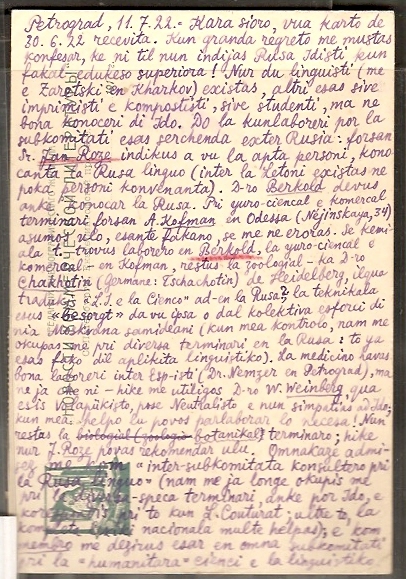 Petrograd, 11.7.22. - Kara sioro, vua karto de
30.6.22 recevita. Kun granda regreto me mustas
konfesar, ke ni til nun indijas Rusa Idisti kun
fakal edukeso superiora! Nur du linguisti (me
e Zaretski en Kharkov) existas, altri esas sive
imprimisti e kompostisti, sive studenti, ma ne
bona konoceri di Ido. Do la kunlaboreri por la
subkomitati esas serchenda exter Rusia: forsan
sr. Jan Roze indikus a vu la apta personi, kono
canta la Rusa linguo (inter la Letoni existas ne
poka personi konvenanta). D-ro Berkold devus
anke konocar la Rusa. Pri yuro-ciencal e komercal
terminari forsan A. Kofman en Odessa (Nejinskaya, 34)
asumos ulo, esante fakano, se me ne eroras. Se kemi-
ala trovus laborero en Berkold, la yuro-ciencal e
komercal - en Kofman, restus la zoologial - ka D-ro
Chakhotin (Germane: Tschachotin) de Heidelberg, ilqua
tradukis "L.I. e la Cienco" ad-en la Rusa? la teknikala
esus "besorgt" da vu ipsa o dal kolektiva esforci di
nia samideani (kun mea kontrolo, nam me
okupas me pri diversa terminari en la Rusa: to ya
esas fako dil aplikita linguistiko). La medicino havas
bona laboreri inter Esp-isti (Dr. Nemzer en Petrograd), ma
ne ja che ni - hike me utiligos D-ro W. Weinberg qua
esis Volapükisto, pose Neutralisto e nun simpatias ad Ido;
kun mea helpo lu povos parlaborar lo necesa! Nun
restas la biologial (zoologia botanikal) terminaro; hike
nur J. Roze povas rekomendar ulu. Omnakaze admi-
sez me kom "inter-subkomitata konsultero pri
la Rusa linguo" (nam me ja longe okupis me
pri diversa-speca terminari, anke por Ido, e
pri to kun L. Couturat; ultre to, la
nacionala multe helpas); e kom
membro me dezirus esar en omna subkomitati
pri la "humanitara" cienci e la linguistiko.